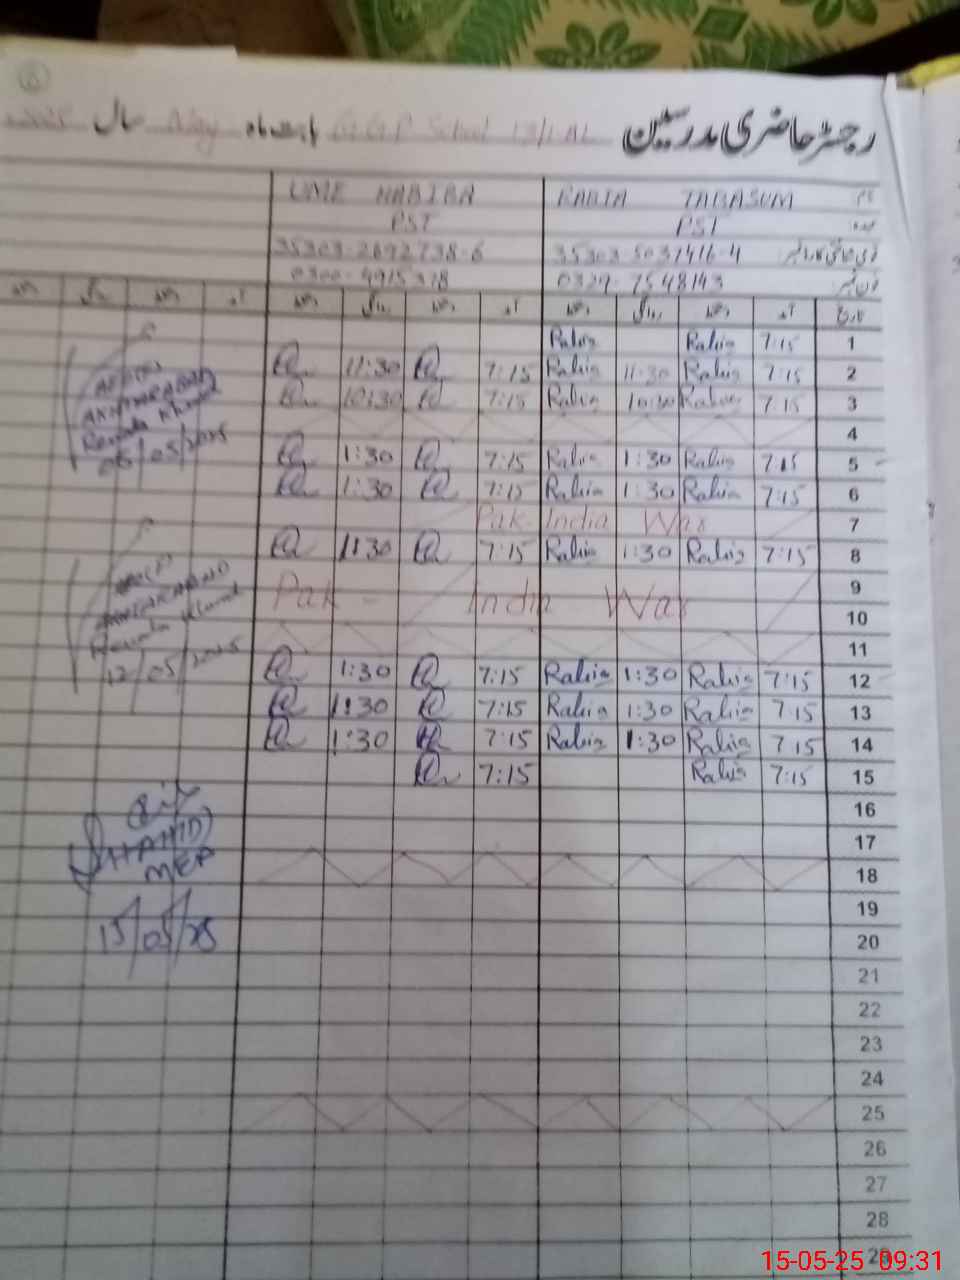 رجسٹر حاضری مدرسین G.G.P School 13/1.AL بابت ماہ May سال 2025
نام RABIA TABASUM UME HABIBA
عہدہ PST PST
قومی شناختی کارڈ نمبر 35303-5037416-4 35303-2692738-6
فون نمبر 0329-7548143 0300-4915378
تاریخ آمد دستخط روانگی دستخط آمد دستخط روانگی دستخط آمد دستخط روانگی دستخط
1 7:15 Rabia Rabia
2 7:15 Rabia 11:30 Rabia 7:15 11:30
3 7:15 Rabia 10:30 Rabia 7:15 10:30
4
5 7:15 Rabia 1:30 Rabia 7:15 1:30
6 7:15 Rabia 1:30 Rabia 7:15 1:30
7 Pak-India War
8 7:15 Rabia 1:30 Rabia 7:15 1:30
9
Pak - India War
10
11
12 7:15 Rabia 1:30 Rabia 7:15 1:30
13 7:15 Rabia 1:30 Rabia 7:15 1:30
14 7:15 Rabia 1:30 Rabia 7:15 1:30
15 7:15 Rabia 7:15
16
17
18
19
20
21
22
23
24
25
26
27
28
29
Renala Khurd
06/05/2025
Renala Khurd
12/05/2025
SHAHID
MEA
15/05/25
15-05-25 09:31